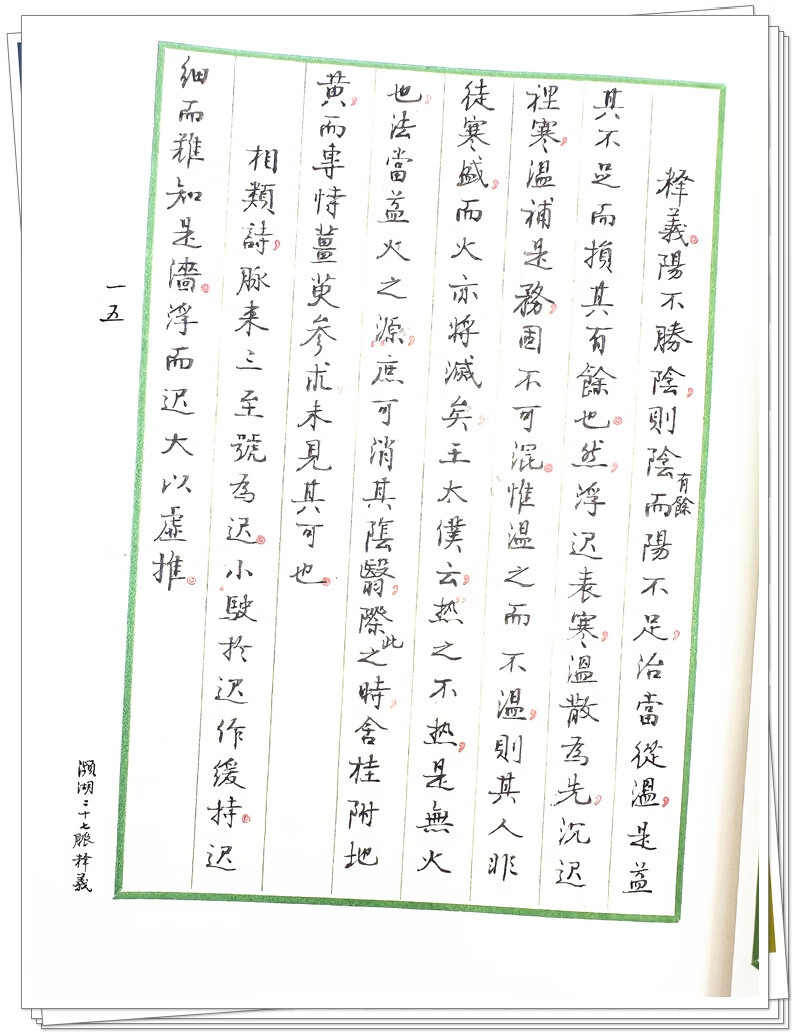 释義。陽不勝陰,則陰有餘而陽不足,治當從溫,是益
其不足而損其有餘也。然,浮迟表寒,溫散為先,沉迟
裡寒,溫補是務,固不可混。惟溫之而不溫,則其人非
徒寒盛,而火亦将滅矣,王太僕云,热之不热,是無火
也,法當益火之源,庶可消其陰翳,際此之時,舍桂附地
黃,而專恃薑萸参朮未見其可也。
相類詩,脉来三至號為迟。小駛於迟作缓持。迟
细而難知是濇。浮而迟大以虚推。
一五
瀕湖二十七脈释義